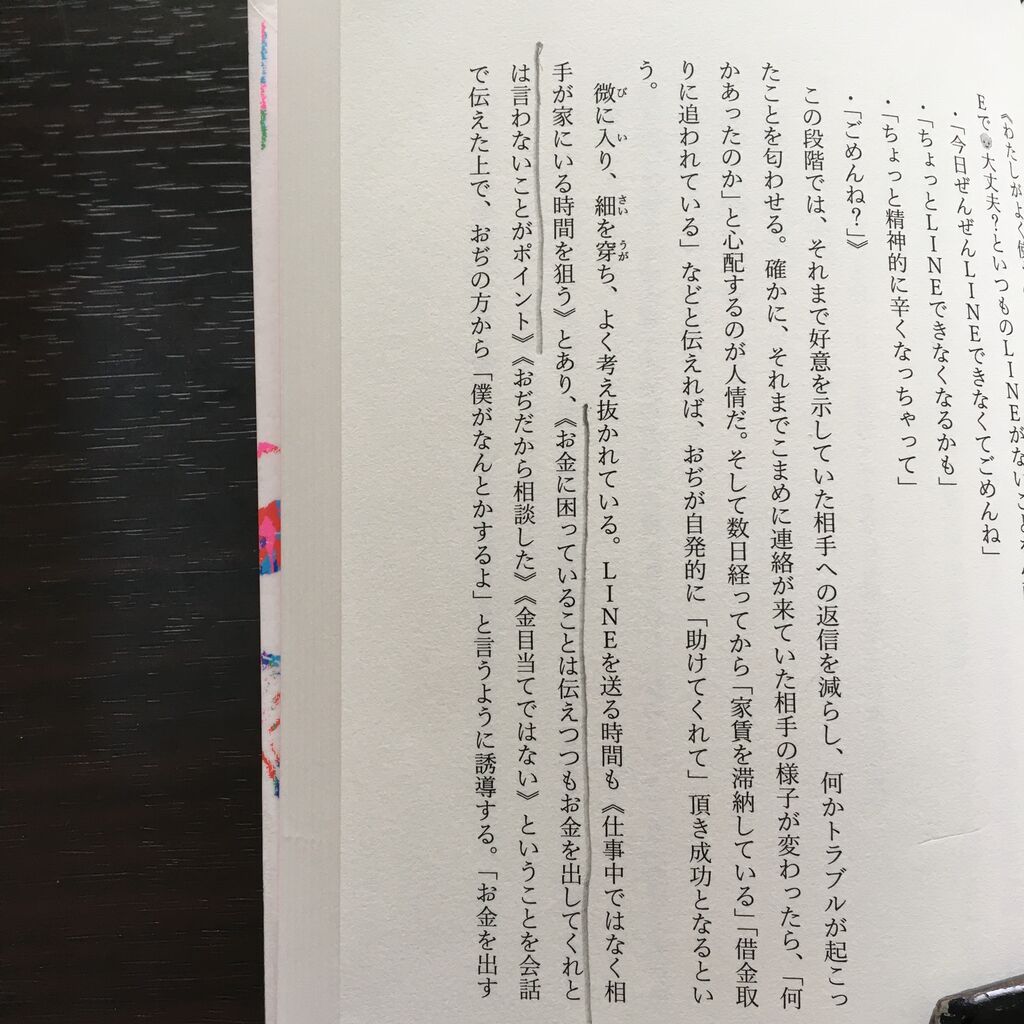 《わたしがよく使
Eで 大丈夫？といつものLINEがないことな
・「今日ぜんぜんLINEできなくてごめんね」
・「ちょっとLINEできなくなるかも」
・「ちょっと精神的に辛くなっちゃって」
・「ごめんね？」》
この段階では、それまで好意を示していた相手への返信を減らし、何かトラブルが起こっ
たことを匂わせる。確かに、それまでこまめに連絡が来ていた相手の様子が変わったら、「何
かあったのか」と心配するのが人情だ。そして数日経ってから「家賃を滞納している」「借金取
りに追われている」などと伝えれば、おぢが自発的に「助けてくれて」頂き成功となるとい
う。
微に入り、細を穿ち、よく考え抜かれている。LINEを送る時間も《仕事中ではなく相
手が家にいる時間を狙う》とあり、《お金に困っていることは伝えつつもお金を出してくれと
は言わないことがポイント》《おぢだから相談した》《金目当てではない》ということを会話
で伝えた上で、おぢの方から「僕がなんとかするよ」と言うように誘導する。「お金を出す